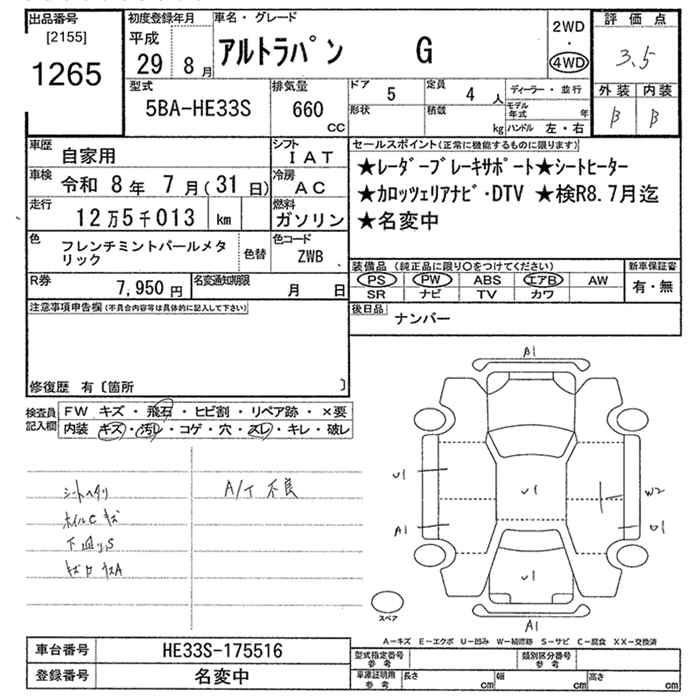 出品番号
[2155]
1265
初度登録年月
平成
29 8月
車名・グレード
アルトラパン G
2WD
・
4WD
評価点
3.5
外装 内装
B B
型式
5BA-HE33S
排気量
660
CC
ドア 5
形状
定員 4 人
積載 kg
ディーラー・並行
モデル年式 年
ハンドル 左・右
車歴 自家用
シフト IAT
車検 令和 8年 7月(31日)
冷房 AC
走行 12万5千013 km
燃料 ガソリン
色 フレンチミントパールメタリック
色替
色コード ZWB
R券 7,950円
名変通知期限 月 日
セールスポイント(正常に機能するものに限ります)
★レーダーブレーキサポート★シートヒーター
★カロッツェリアナビ・DTV ★検R8.7月迄
★名変中
装備品 (純正品に限り○をつけてください)
PS PW ABS エアB AW
SR ナビ TV カワ
新車保証書
有・無
後日品 ナンバー
注意事項申告欄(不具合内容等は具体的に記入して下さい)
修復歴 有〔箇所 〕
検査員記入欄
FW キズ・飛石・ヒビ割・リペア跡・×要
内装 キズ・汚レ・コゲ・穴・スレ・キレ・破レ
シートヘタリ
ホイルC キズ
下廻りS
A/T 不良
A1
U1
A1
U1
W2
U1
U1
A1
スペア
A-キズ E-エクボ U-凹み W-補修跡 S-サビ C-腐食 XX-交換済
車台番号 HE33S-175516
登録番号 名変中
型式指定番号 参考
類別区分番号 参考
車庫証明用 参考
長さ cm
幅 cm
高さ cm